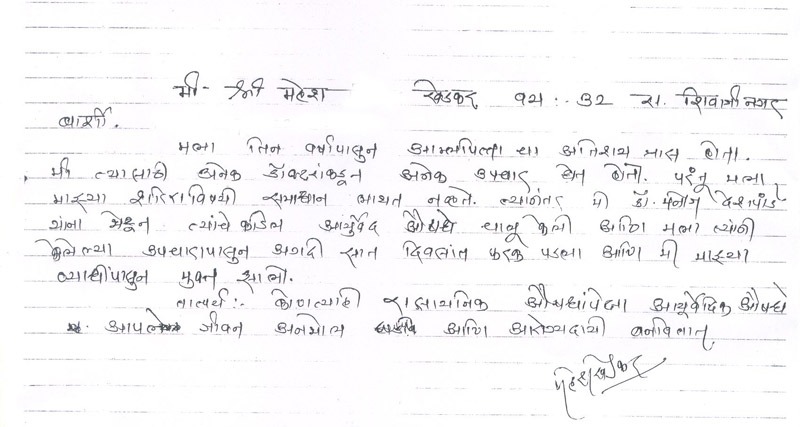 मी - श्री महेश खेडकर वय :- 32 रा. शिवाजी नगर
बार्शी.
मला तिन वर्षापासुन आम्लपित्ता चा अतिशय त्रास होता.
मी त्यासाठी अनेक डॉक्टरांकडून अनेक उपचार घेत होतो. परंतू मला
माझ्या शरिराविषयी समाधान लाभत नव्हते. त्यानंतर मी डॉ. मनोग देशपांडे
यांना भेटून त्यांचे कडिल आयुर्वेद औषधे चालू केली आणि मला त्यांनी
केलेल्या उपचारापासुन अगदी सात दिवसांत फरक पडला आणि मी माझ्या
व्याधीपासुन मुक्त झालो.
तात्पर्य :- कोणत्याही रासायनिक औषधांपेक्षा आयुर्वेदिक औषधे
आपले जीवन अनमोल आणि आरोग्यदायी बनवितात्